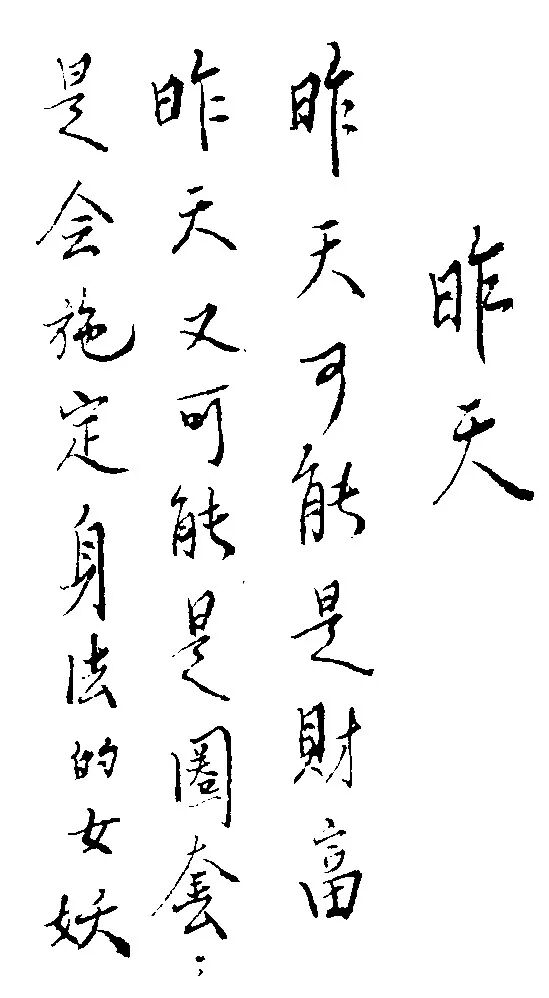 昨天
昨天可能是財富
昨天又可能是圈套：
是会施定身法的女妖